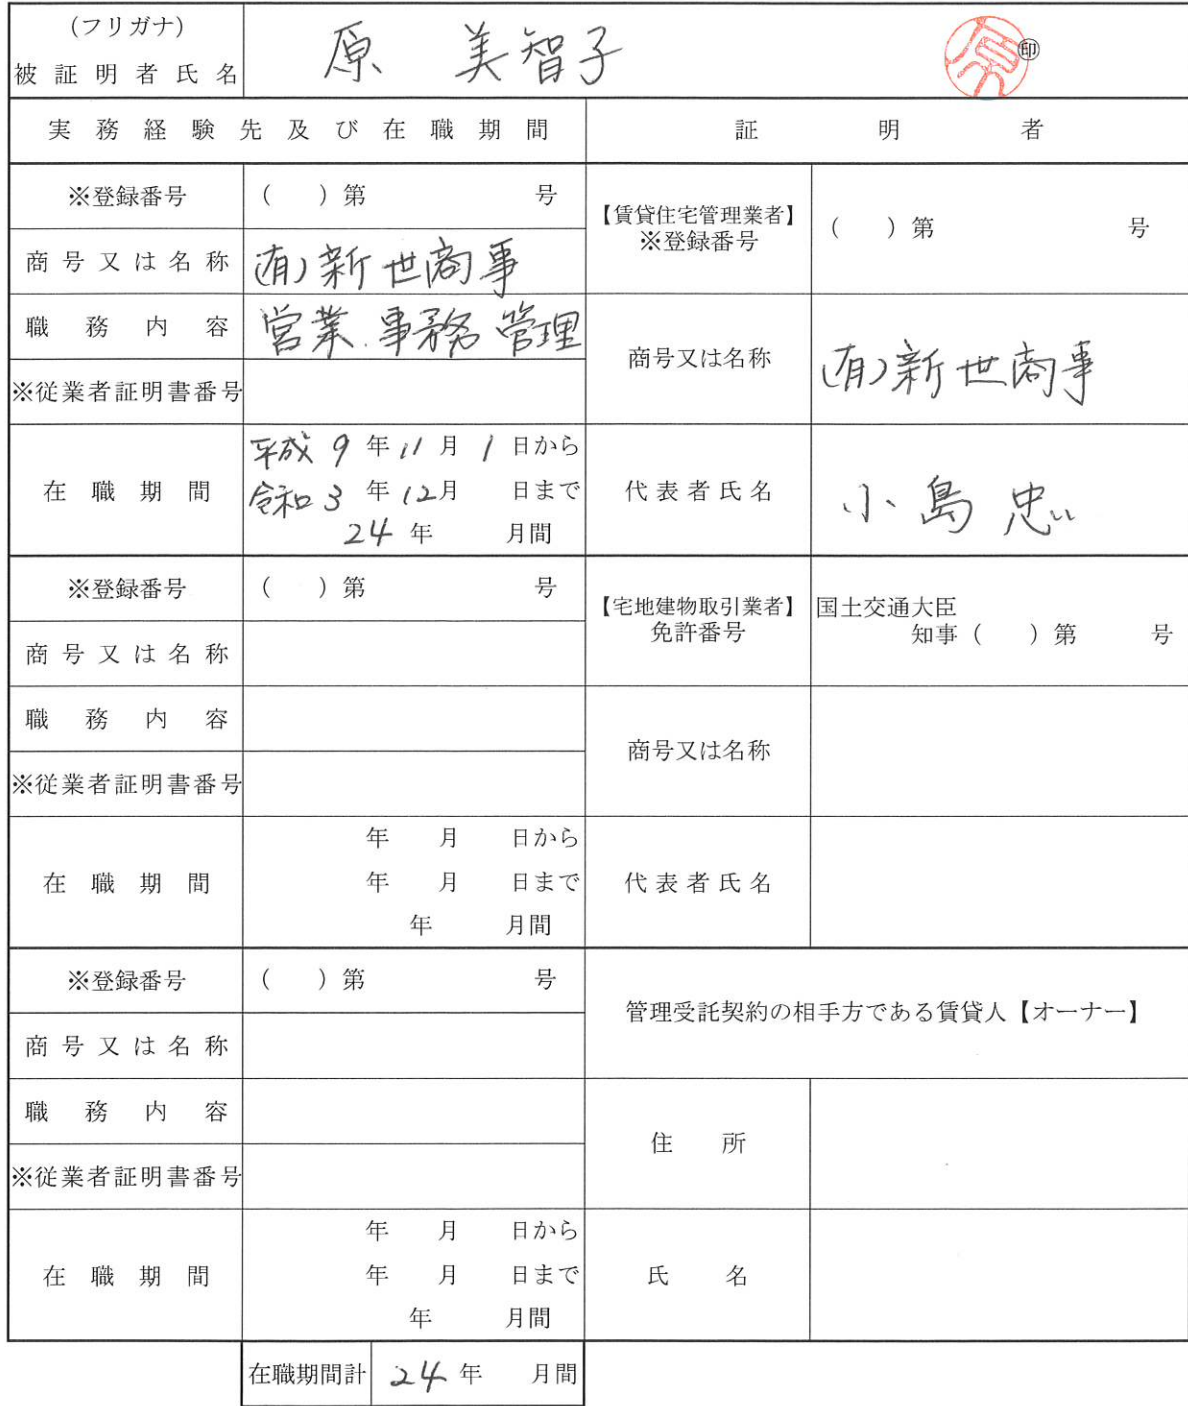 (フリガナ)
被証明者氏名 原 美智子 ㊞
実務経験先及び在職期間 証明者
※登録番号 ( )第 号
商号又は名称 (有)新世商事
職務内容 営業.事務 管理
※従業者証明書番号
在職期間 平成 9 年 11 月 1 日から
令和 3 年 12月 日まで
24 年 月間
【賃貸住宅管理業者】
※登録番号 ( )第 号
商号又は名称 (有)新世商事
代表者氏名 小島 忠
※登録番号 ( )第 号
商号又は名称
職務内容
※従業者証明書番号
在職期間 年 月 日から
年 月 日まで
年 月間
【宅地建物取引業者】 国土交通大臣
免許番号 知事( )第 号
商号又は名称
代表者氏名
※登録番号 ( )第 号
商号又は名称
職務内容
※従業者証明書番号
在職期間 年 月 日から
年 月 日まで
年 月間
管理受託契約の相手方である賃貸人【オーナー】
住所
氏名
在職期間計 24 年 月間